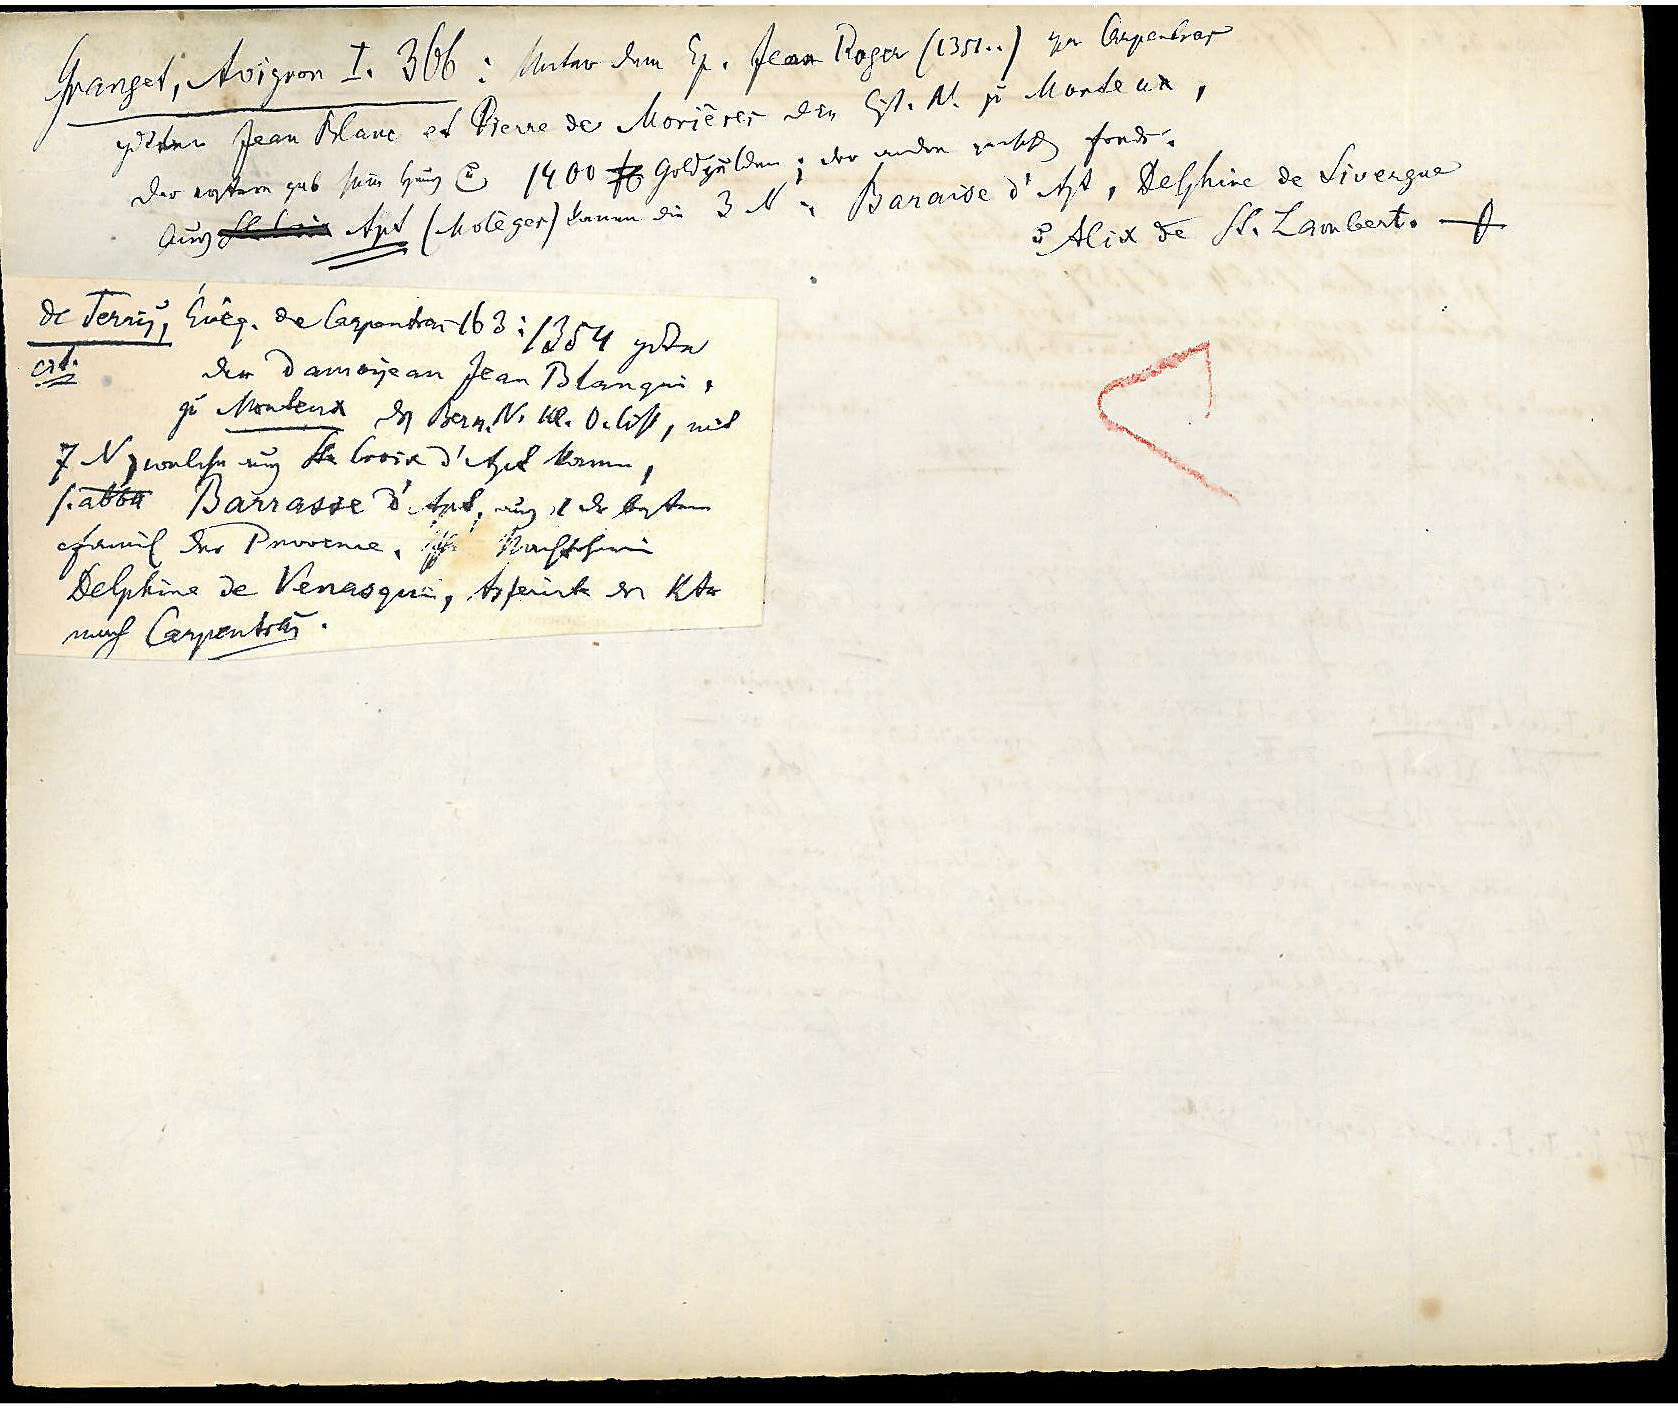 Granget, Avignon I. 366: Unter dem Ep. Jean Roger (1351..) zu Carpentras
Jean Blanc et Pierre de Morières den Cist. N. zu Monteux,
der erstere gab sein Haus u 1400 Goldgulden; der andere fonds.
Aus Apt (Molèger) kamen die 3 N: Baraise d'Apt, Delphine de Sivergue
u Alix de St. Lambert.
de Terris, Évêq. de Carpentras 163: 1354
crt. der Damoiseau Jean Blanqui,
zu Monteux Bern. N. Kl. O. Cist, mit
7 N, welche aus Ste Croix d'Apt kamen,
Barrasse d'Apt, aus der ersten
Famil der Provence. Nachfolgerin
Delphine de Venasque, das Kter
nach Carpentras.